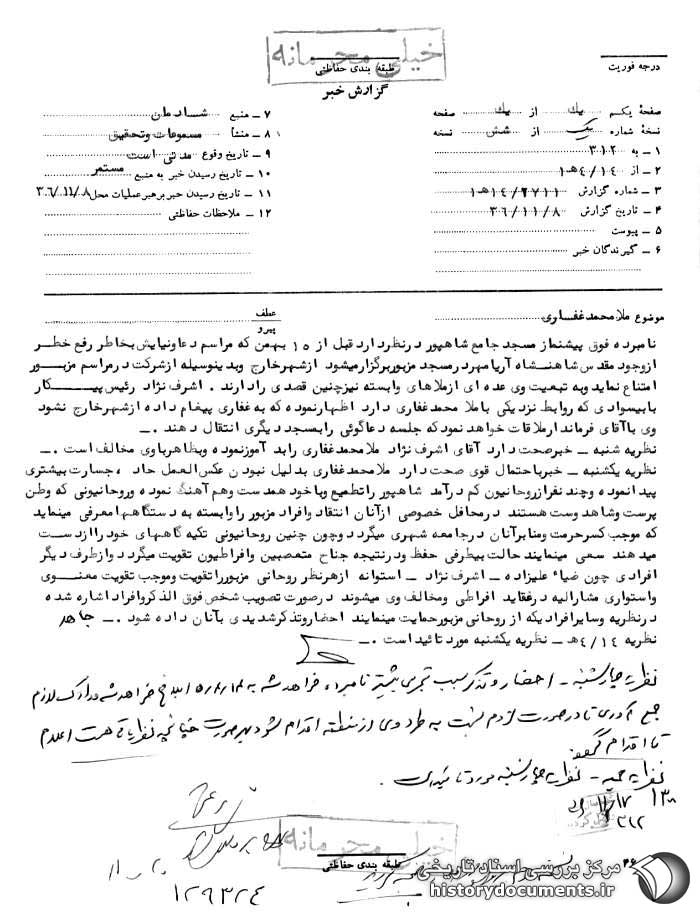 خیلی محرمانه
طبقه بندی حفاظتی
گزارش خبر
درجه فوریت
صفحهٔ یکم یك از یك صفحه
نسخهٔ شماره یک از شش نسخه
۱ – به ۳۱۲
۲ – از ۴/۱۴هـ۱
۳ – شماره گزارش
۴ – تاریخ گزارش ۳۶/۱۱/۸
۵ – پیوست
۶ – گیرندگان خبر
۷ – منبع شادمان
۸ – منشأ مسموعات وتحقیق
۹ – تاریخ وقوع مدتی است
۱۰ – تاریخ رسیدن خبر به منبع مستمر
۱۱ – تاریخ رسیدن خبر برهبر عملیات محل ۳۶/۱۱/۸
۱۲ – ملاحظات حفاظتی
موضوع ملامحمدغفاری
عطف
پیرو
نامبرده فوق پیشنماز مسجد جامع شاهپور درنظردارد قبل از ۱۵ بهمن که مراسم دعاونیایش بخاطر رفع خطر
ازوجود مقدس شاهنشاه آریامهر درمسجد مزبوربرگزارمیشود ازشهرخارج وبدینوسیله ازشرکت درمراسم مزبور
امتناع نماید وبه تبعیت وی عده ای ازملاهای وابسته نیزچنین قصدی رادارند . اشرف نژاد رئیس پیکار
بابیسوادی که روابط نزدیکی باملا محمدغفاری دارد اظهارنموده که به غفاری پیغام داده ازشهرخارج نشود
وی باآقای فرماندارملاقات خواهد نمود که جلسه دعاگوئی رابمسجد دیگری انتقال دهند .ـ
نظریه شنبه ـ خبرصحت دارد آقای اشرف نژاد ملامحمدغفاری رابد آموزنموده وبظاهرباوی مخالف است .ـ
نظریه یکشنبه ـ خبرباحتمال قوی صحت دارد ملامحمدغفاری بدلیل نبودن عکس العمل حاد ، جسارت بیشتری
پیدانموده وچند نفرازروحانیون کم درآمد شاهپور راتطمیع وباخود همدست وهم آهنگ نموده وروحانیونی که وطن
پرست وشاهدوست هستند درمحافل خصوصی ازآنان انتقاد وافراد مزبور راوابسته به دستگاهها معرفی مینماید
که موجب کسرحرمت ومنابرآنان درجامعه شهری میگردد وچون چنین روحانیونی تکیه گاههای خود راازدست
میدهند سعی مینمایند حالت بیطرفی حفظ ودرنتیجه جناح متعصبین وافراطیون تقویت میگردد وازطرف دیگر
افرادی چون ضیاء علیزاده ـ اشرف نژاد ـ استوانه ازهرنظر روحانی مزبورراتقویت وموجب تقویت معنوی
واستواری مشارالیه درعقاید افراطی ومخالف وی میشوند درصورت تصویب شخص فوق الذکروافراد اشاره شده
درنظریه وسایرافرادیکه از روحانی مزبورحمایت مینمایند احضاروتذکرشدیدی بآنان داده شود .ـ جاهد
نظریه ۴/۱۴هـ ـ نظریه یکشنبه مورد تائید است .ـ
نظریه چهارشنبه ـ احضار و تذکر سبب تجری بیشتر نامبرده خواهد شد به ابلاغ خواهد شد مدارک لازم
جمع آوری تا درصورت لزوم نسبت به طرد وی از منطقه اقدام شود
تا اقدام گردد
نظریه جمعه ـ نظریه چهارشنبه مورد تائید است .
۳۱۲
خیلی محرمانه
طبقه بندی حفاظتی
۱۲۹۳۲۴
مرکز بررسی اسناد تاریخی
historydocuments.ir